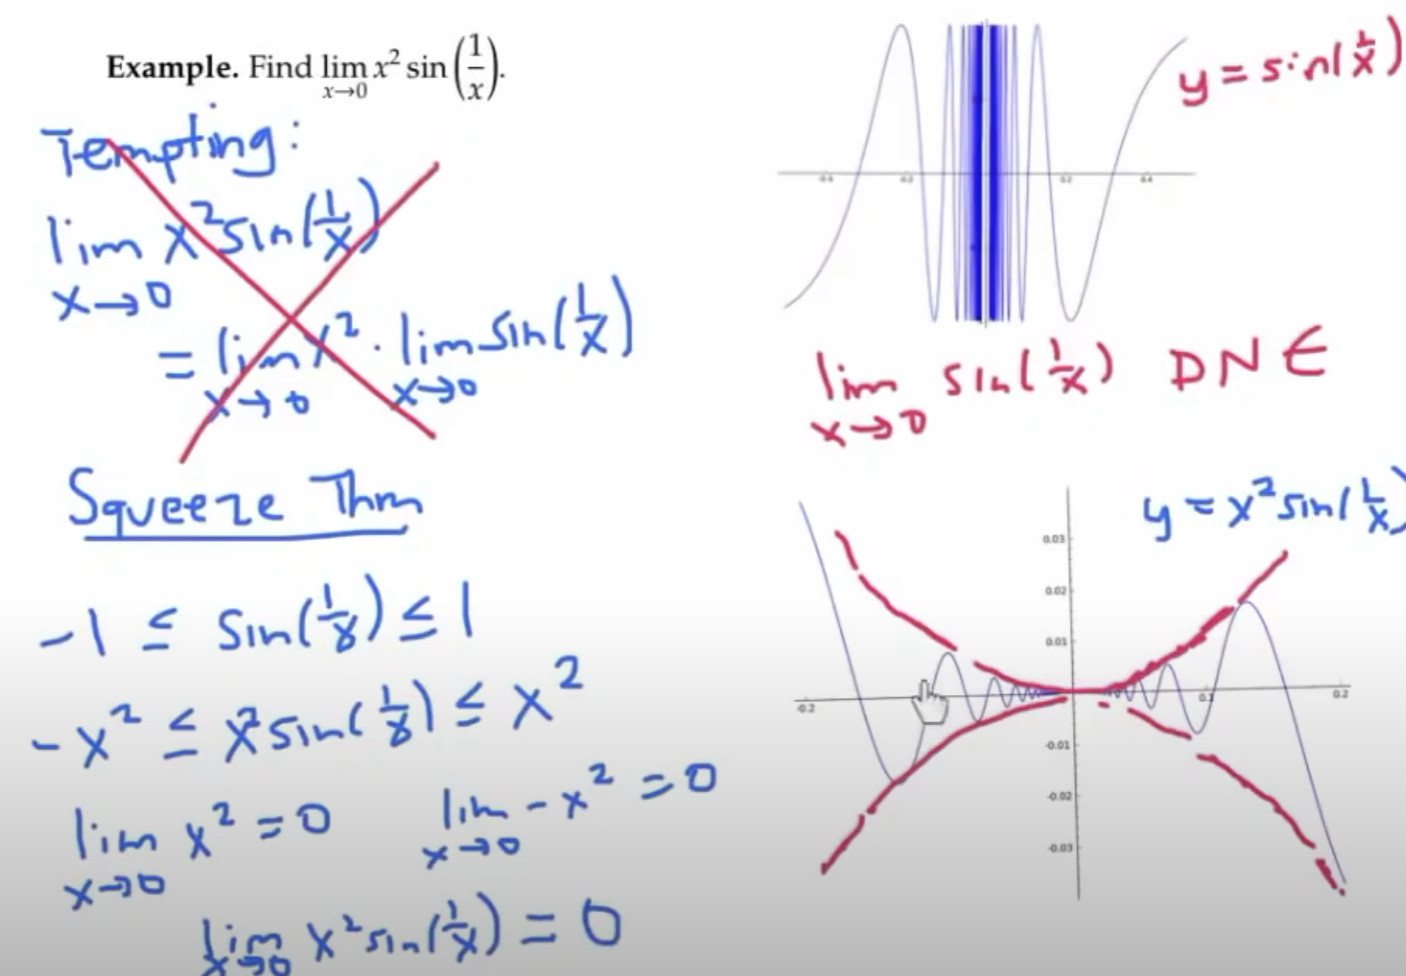 Example. Find lim x→0 x² sin(1/x).
Tempting:
lim x→0 x² sin(1/x)
= lim x→0 x² · lim x→0 sin(1/x)
Squeeze Thm
-1 ≤ sin(1/x) ≤ 1
-x² ≤ x² sin(1/x) ≤ x²
lim x→0 x² = 0 lim x→0 -x² = 0
lim x→0 x² sin(1/x) = 0
y = sin(1/x)
-0.4 -0.2 0.2 0.4
lim x→0 sin(1/x) DNE
y = x² sin(1/x)
0.03
0.02
0.01
-0.2 0.1 0.2
-0.01
-0.02
-0.03